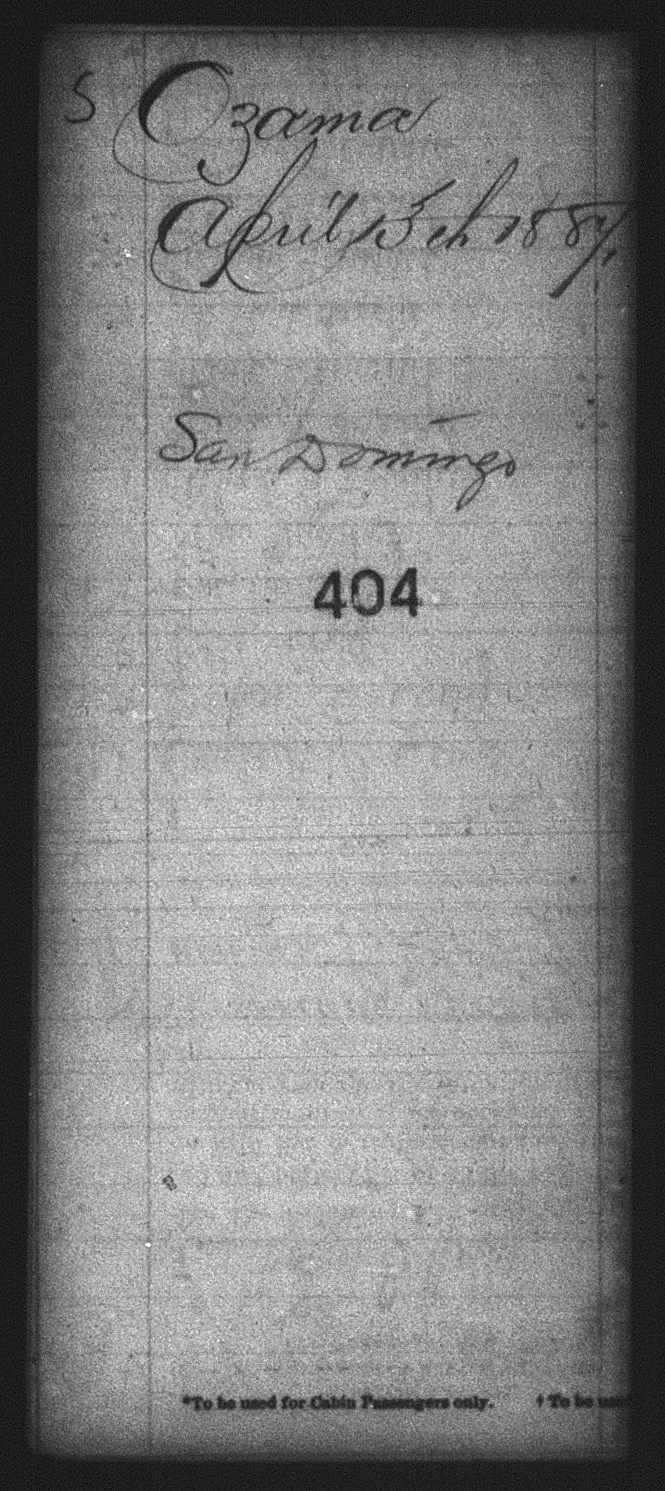 S Ozama
April 15th 1887,
San Domingo
404
*To be used for Cabin Passengers only. † To be